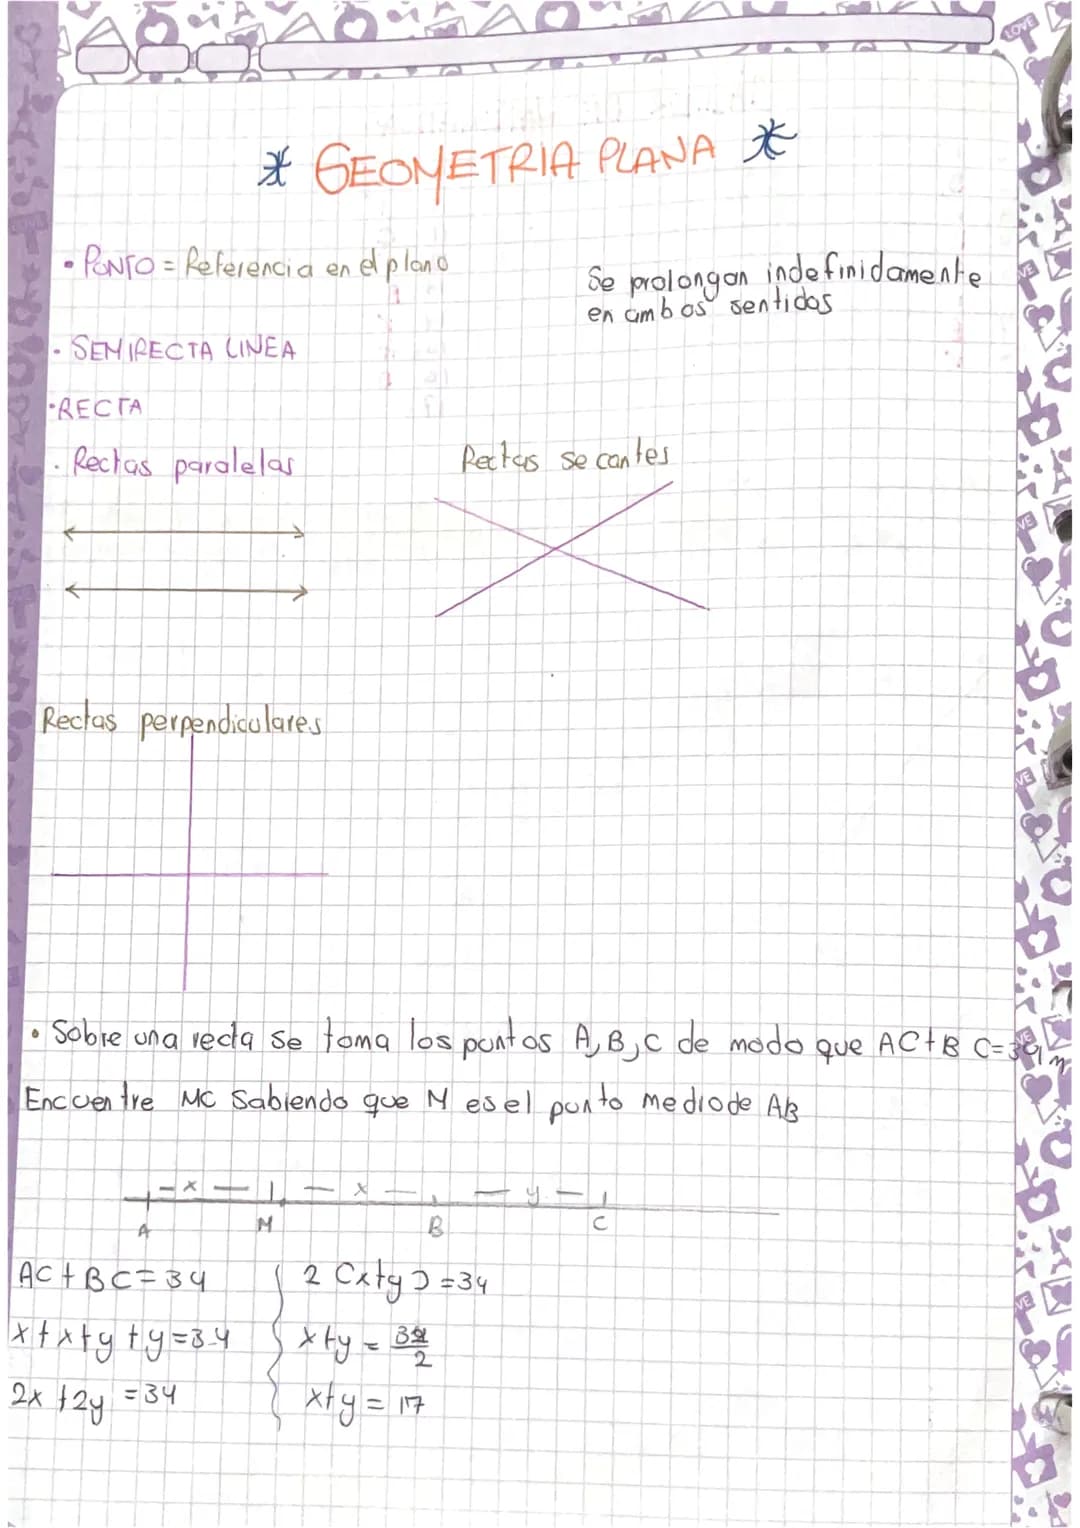 * GEOMETRIA PLANA *
• PUNTO = Referencia en el plano
Se prolongan indefinidamente
en ambos sentidos
• SEMIRECTA LINEA
• RECTA
• Rectas paralelas
Rectas secantes
Rectas perpendiculares
• Sobre una recta se toma los puntos A, B, C de modo que AC + BC = 34m
Encuentre MC Sabiendo que M es el punto medio de AB
- x - | - x - - y -
A M B C
AC + BC = 34
2 (x+y) = 34
x + x + y + y = 34
x + y = 34/2
2x + 2y = 34
x + y = 17
LOVE